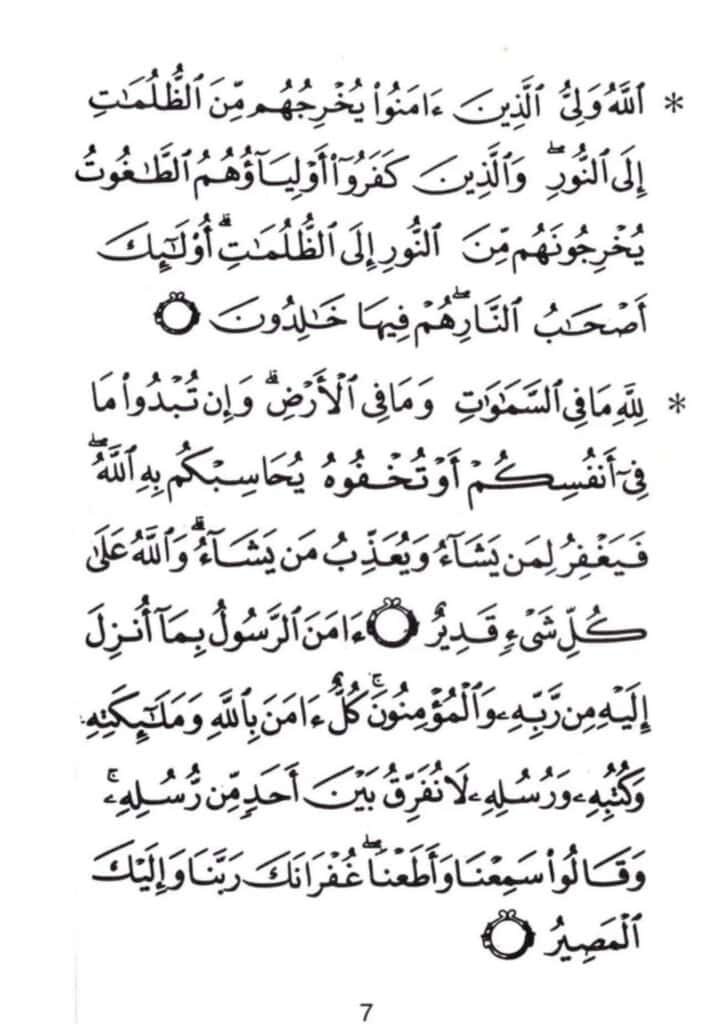 * ٱللَّهُ وَلِىُّ ٱلَّذِينَ ءَامَنُوا۟ يُخْرِجُهُم مِّنَ ٱلظُّلُمَـٰتِ
إِلَى ٱلنُّورِ ۖ وَٱلَّذِينَ كَفَرُوٓا۟ أَوْلِيَآؤُهُمُ ٱلطَّـٰغُوتُ
يُخْرِجُونَهُم مِّنَ ٱلنُّورِ إِلَى ٱلظُّلُمَـٰتِ ۗ أُو۟لَـٰٓئِكَ
أَصْحَـٰبُ ٱلنَّارِ ۖ هُمْ فِيهَا خَـٰلِدُونَ ۝
* لِلَّهِ مَا فِى ٱلسَّمَـٰوَٰتِ وَمَا فِى ٱلْأَرْضِ ۗ وَإِن تُبْدُوا۟ مَا
فِىٓ أَنفُسِكُمْ أَوْ تُخْفُوهُ يُحَاسِبْكُم بِهِ ٱللَّهُ ۖ
فَيَغْفِرُ لِمَن يَشَآءُ وَيُعَذِّبُ مَن يَشَآءُ ۗ وَٱللَّهُ عَلَىٰ
كُلِّ شَىْءٍ قَدِيرٌ ۝ ءَامَنَ ٱلرَّسُولُ بِمَآ أُنزِلَ
إِلَيْهِ مِن رَّبِّهِۦ وَٱلْمُؤْمِنُونَ ۚ كُلٌّ ءَامَنَ بِٱللَّهِ وَمَلَـٰٓئِكَتِهِۦ
وَكُتُبِهِۦ وَرُسُلِهِۦ لَا نُفَرِّقُ بَيْنَ أَحَدٍ مِّن رُّسُلِهِۦ ۚ
وَقَالُوا۟ سَمِعْنَا وَأَطَعْنَا ۖ غُفْرَانَكَ رَبَّنَا وَإِلَيْكَ
ٱلْمَصِيرُ ۝
7